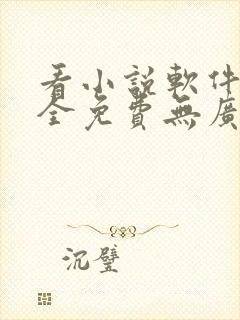 看小說軟件
全免費無廣
沉璧